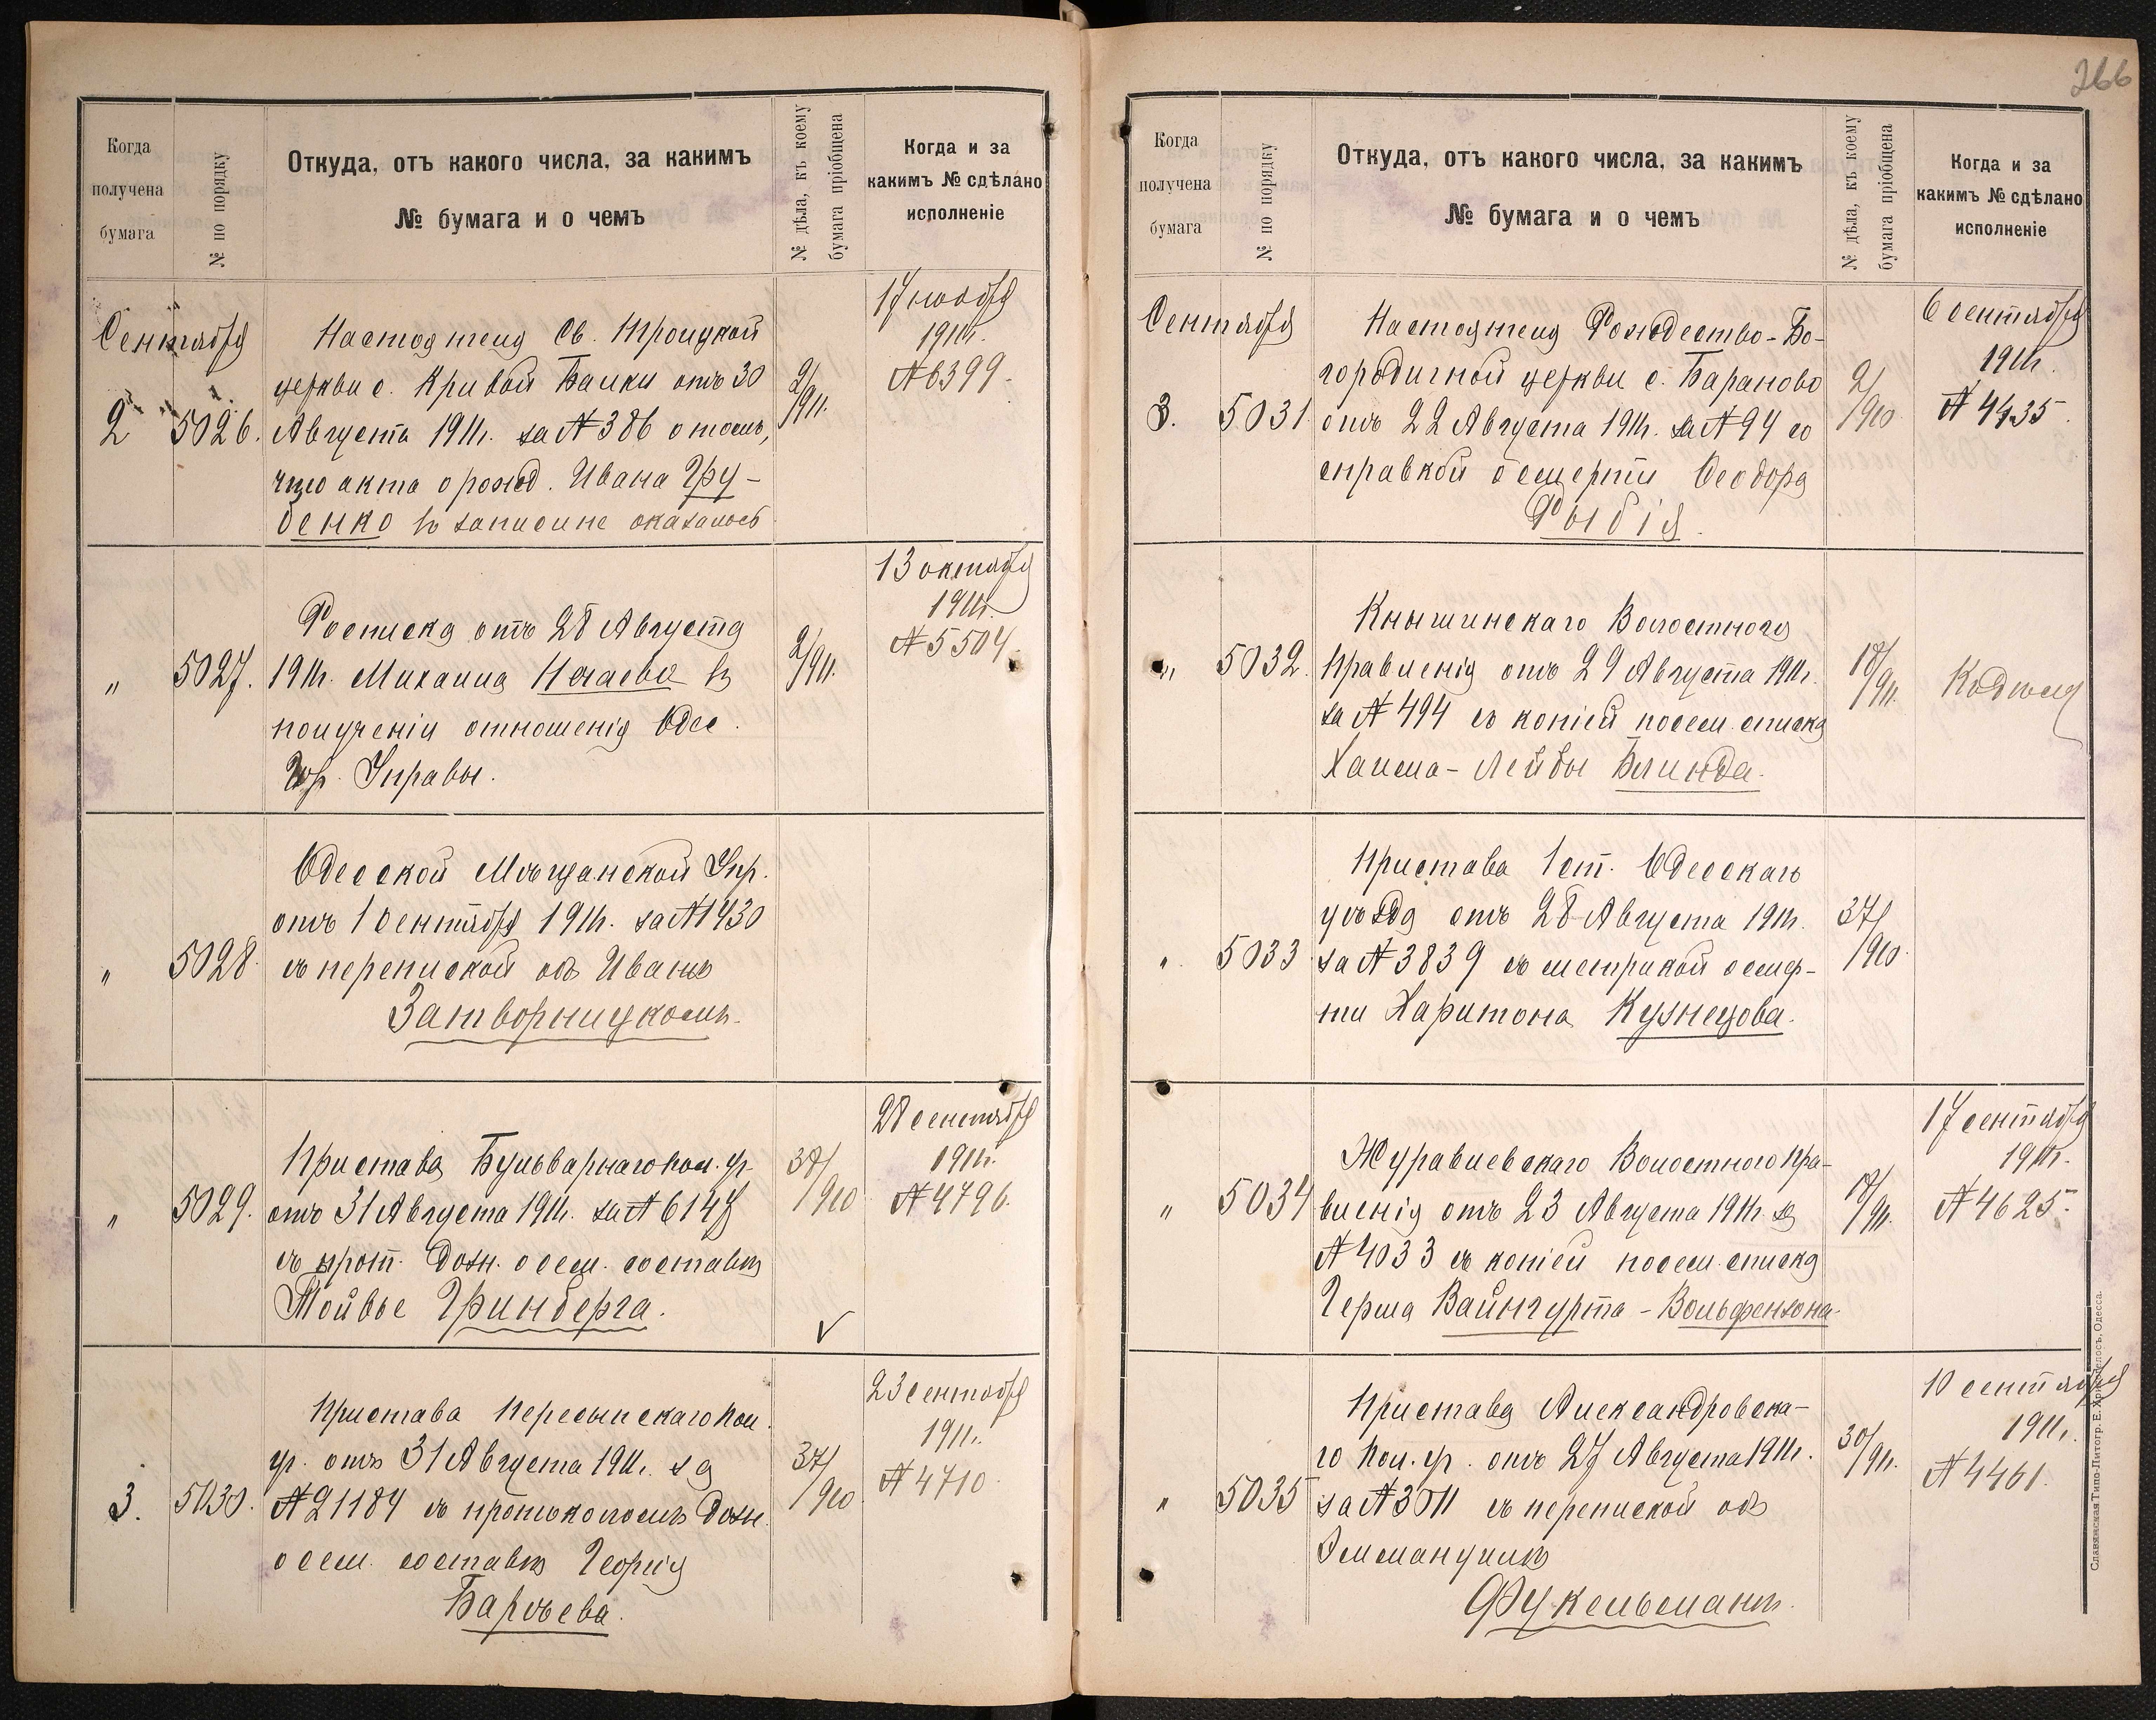 266
Когда
получена
бумага
№ по порядку
Откуда, отъ какого числа, за какимъ
№ бумага и о чемъ
№ дѣла, къ коему
бумага пріобщена
Когда и за
какимъ № сдѣлано
исполненіе
Сентября
2
5026.
Настоятеля Св. Троицкой
церкви с. Кривой Балки отъ 30
Августа 1911г. за № 386 о томъ,
что акта о рожд. Ивана Гру-
бенко въ записи не оказалось
2/911.
17 ноября
1911г.
№ 6399.
"
5027.
Росписка отъ 28 Августа
1911г. Михаила Нечаева въ
полученіи отношенія Одес.
Гор. Управы.
2/911.
13 октября
1911г.
№ 5504.
"
5028.
Одесской Мѣщанской Упр.
отъ 1 Сентября 1911г. за № 1430
съ перепиской объ Иванѣ
Затворницкомъ.
"
5029.
Пристава Бульварнаго пол. уч.
отъ 31 Августа 1911г. за № 6147
съ прот. дозн. о сем. составѣ
Мойвье Гринберга.
37/910
28 сентября
1911г.
№ 4796.
3.
5030.
Пристава Пересыпскаго пол.
уч. отъ 31 Августа 1911г. за
№ 21184 съ протоколомъ дозн.
о сем. составѣ Георгія
Баръева.
37/910
23 сентября
1911г.
№ 4710.
Когда
получена
бумага
№ по порядку
Откуда, отъ какого числа, за какимъ
№ бумага и о чемъ
№ дѣла, къ коему
бумага пріобщена
Когда и за
какимъ № сдѣлано
исполненіе
Сентября
3.
5031.
Настоятеля Рождество-Бо-
городичной церкви с. Бараново
отъ 22 Августа 1911г. за № 94 со
справкой о смерти Ѳеодора
Рыбія.
2/910
6 сентября
1911г.
№ 4435.
"
5032.
Кнышинскаго Волостного
Правленія отъ 29 Августа 1911г.
за № 494 съ копіей посем. списка
Хаима-Лейбы Блинда.
18/911.
Къ дѣлу
"
5033
Пристава 1 ст. Одесскаго
уѣзда отъ 28 Августа 1911г.
за № 3839 съ метрикой о смер-
ти Харитона Кузнецова.
37/910
"
5034
Журавлевскаго Волостного Пра-
вленія отъ 23 Августа 1911г. за
№ 4033 съ копіей посем. списка
Герша Вайнгурта-Вольфензона.
18/911.
17 сентября
1911г.
№ 4625.
"
5035
Пристава Александровска-
го пол. уч. отъ 27 Августа 1911г.
за № 3011 съ перепиской объ
Эммануилѣ
Фукельманъ.
30/911.
10 сентября
1911г.
№ 4461.
Славянская Типо-Литогр. Е. Хрисогелосъ, Одесса.